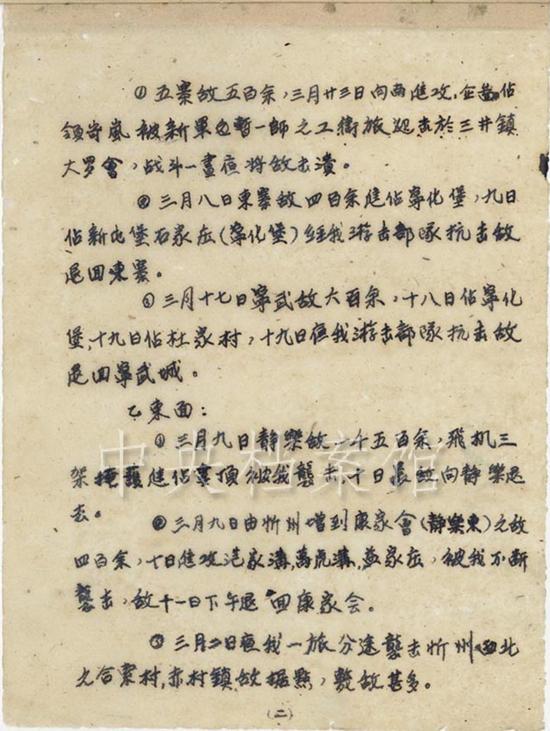 ①五寨敌五百余，三月廿三日向西進攻，企圖佔
領岢嵐被新軍之暫一師之工衛旅迎击於三井鎮
大罗會，战斗一晝夜将敌击潰。
②三月八日東寨敌四百余進佔寧化堡，九日
佔新屯堡石家庄(寧化堡)経我游击部隊抗击敌
退回東寨。
③三月十七日寧武敌大百余，十八日佔寧化
堡，十九日佔杜家村，十九日夜我游击部隊抗击敌
退回寧武城。
乙東面：
①三月九日静樂敌一千五百余，飛机三
架掩護進佔婁頂被我襲击，十日晨敌向静樂退
去。
②三月九日由忻州增到康家會(静樂東)之敌
四百余，十日進攻范家溝，萬虎溝，孟家庄，被我不断
襲击，敌十一日下午退回康家会。
③三月二日夜我一旅分途襲击忻州西北
之合索村，赤村鎮敌据點，斃敌甚多。
(二)
中央档案馆